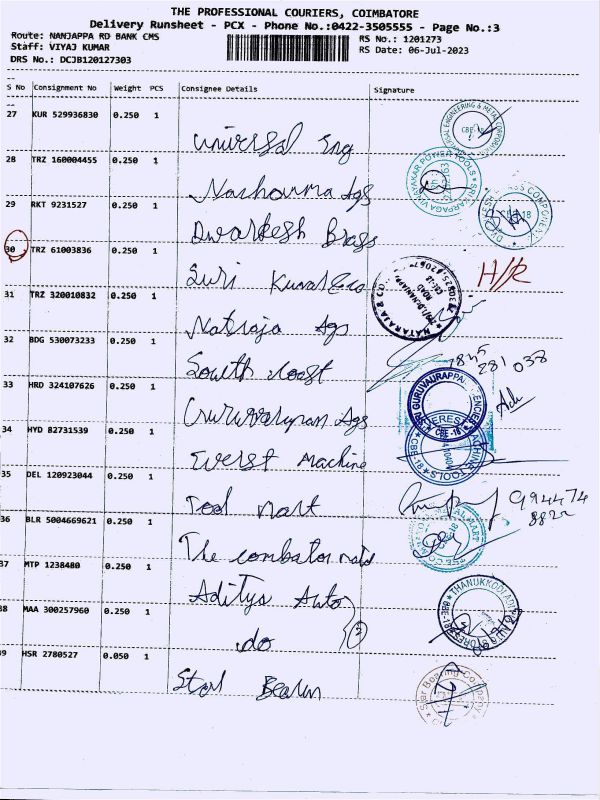 THE PROFESSIONAL COURIERS, COIMBATORE
Delivery Runsheet - PCX - Phone No.:0422-3505555 - Page No.:3
Route: NANJAPPA RD BANK CMS
RS No.: 1201273
Staff: VIYAJ KUMAR
RS Date: 06-Jul-2023
DRS No.: DCJB120127303
S No Consignment No Weight PCS Consignee Details Signature
27 KUR 529936830 0.250 1
Universal Eng
28 TRZ 160004455 0.250 1
Nashouma Ags
29 RKT 9231527 0.250 1
Dwarkesh Brags
30 TRZ 61003836 0.250 1
Suri Kumar
H/R
31 TRZ 320010832 0.250 1
Natraja Ags
32 BDG 530073233 0.250 1
South coast
7845
281 038
33 HRD 324107626 0.250 1
Ags
34 HYD 82731539 0.250 1
Everst Machine
35 DEL 120923044 0.250 1
Tool Mart
994474
8822
36 BLR 5004669621 0.250 1
The combator
37 MTP 1238480 0.250 1
Aditya Auto
38 MAA 300257960 0.250 1
do
2
39 HSR 2780527 0.050 1
Star Bearin
SRI GURUVAURAPPA
CBE-18
Star Bearing Company